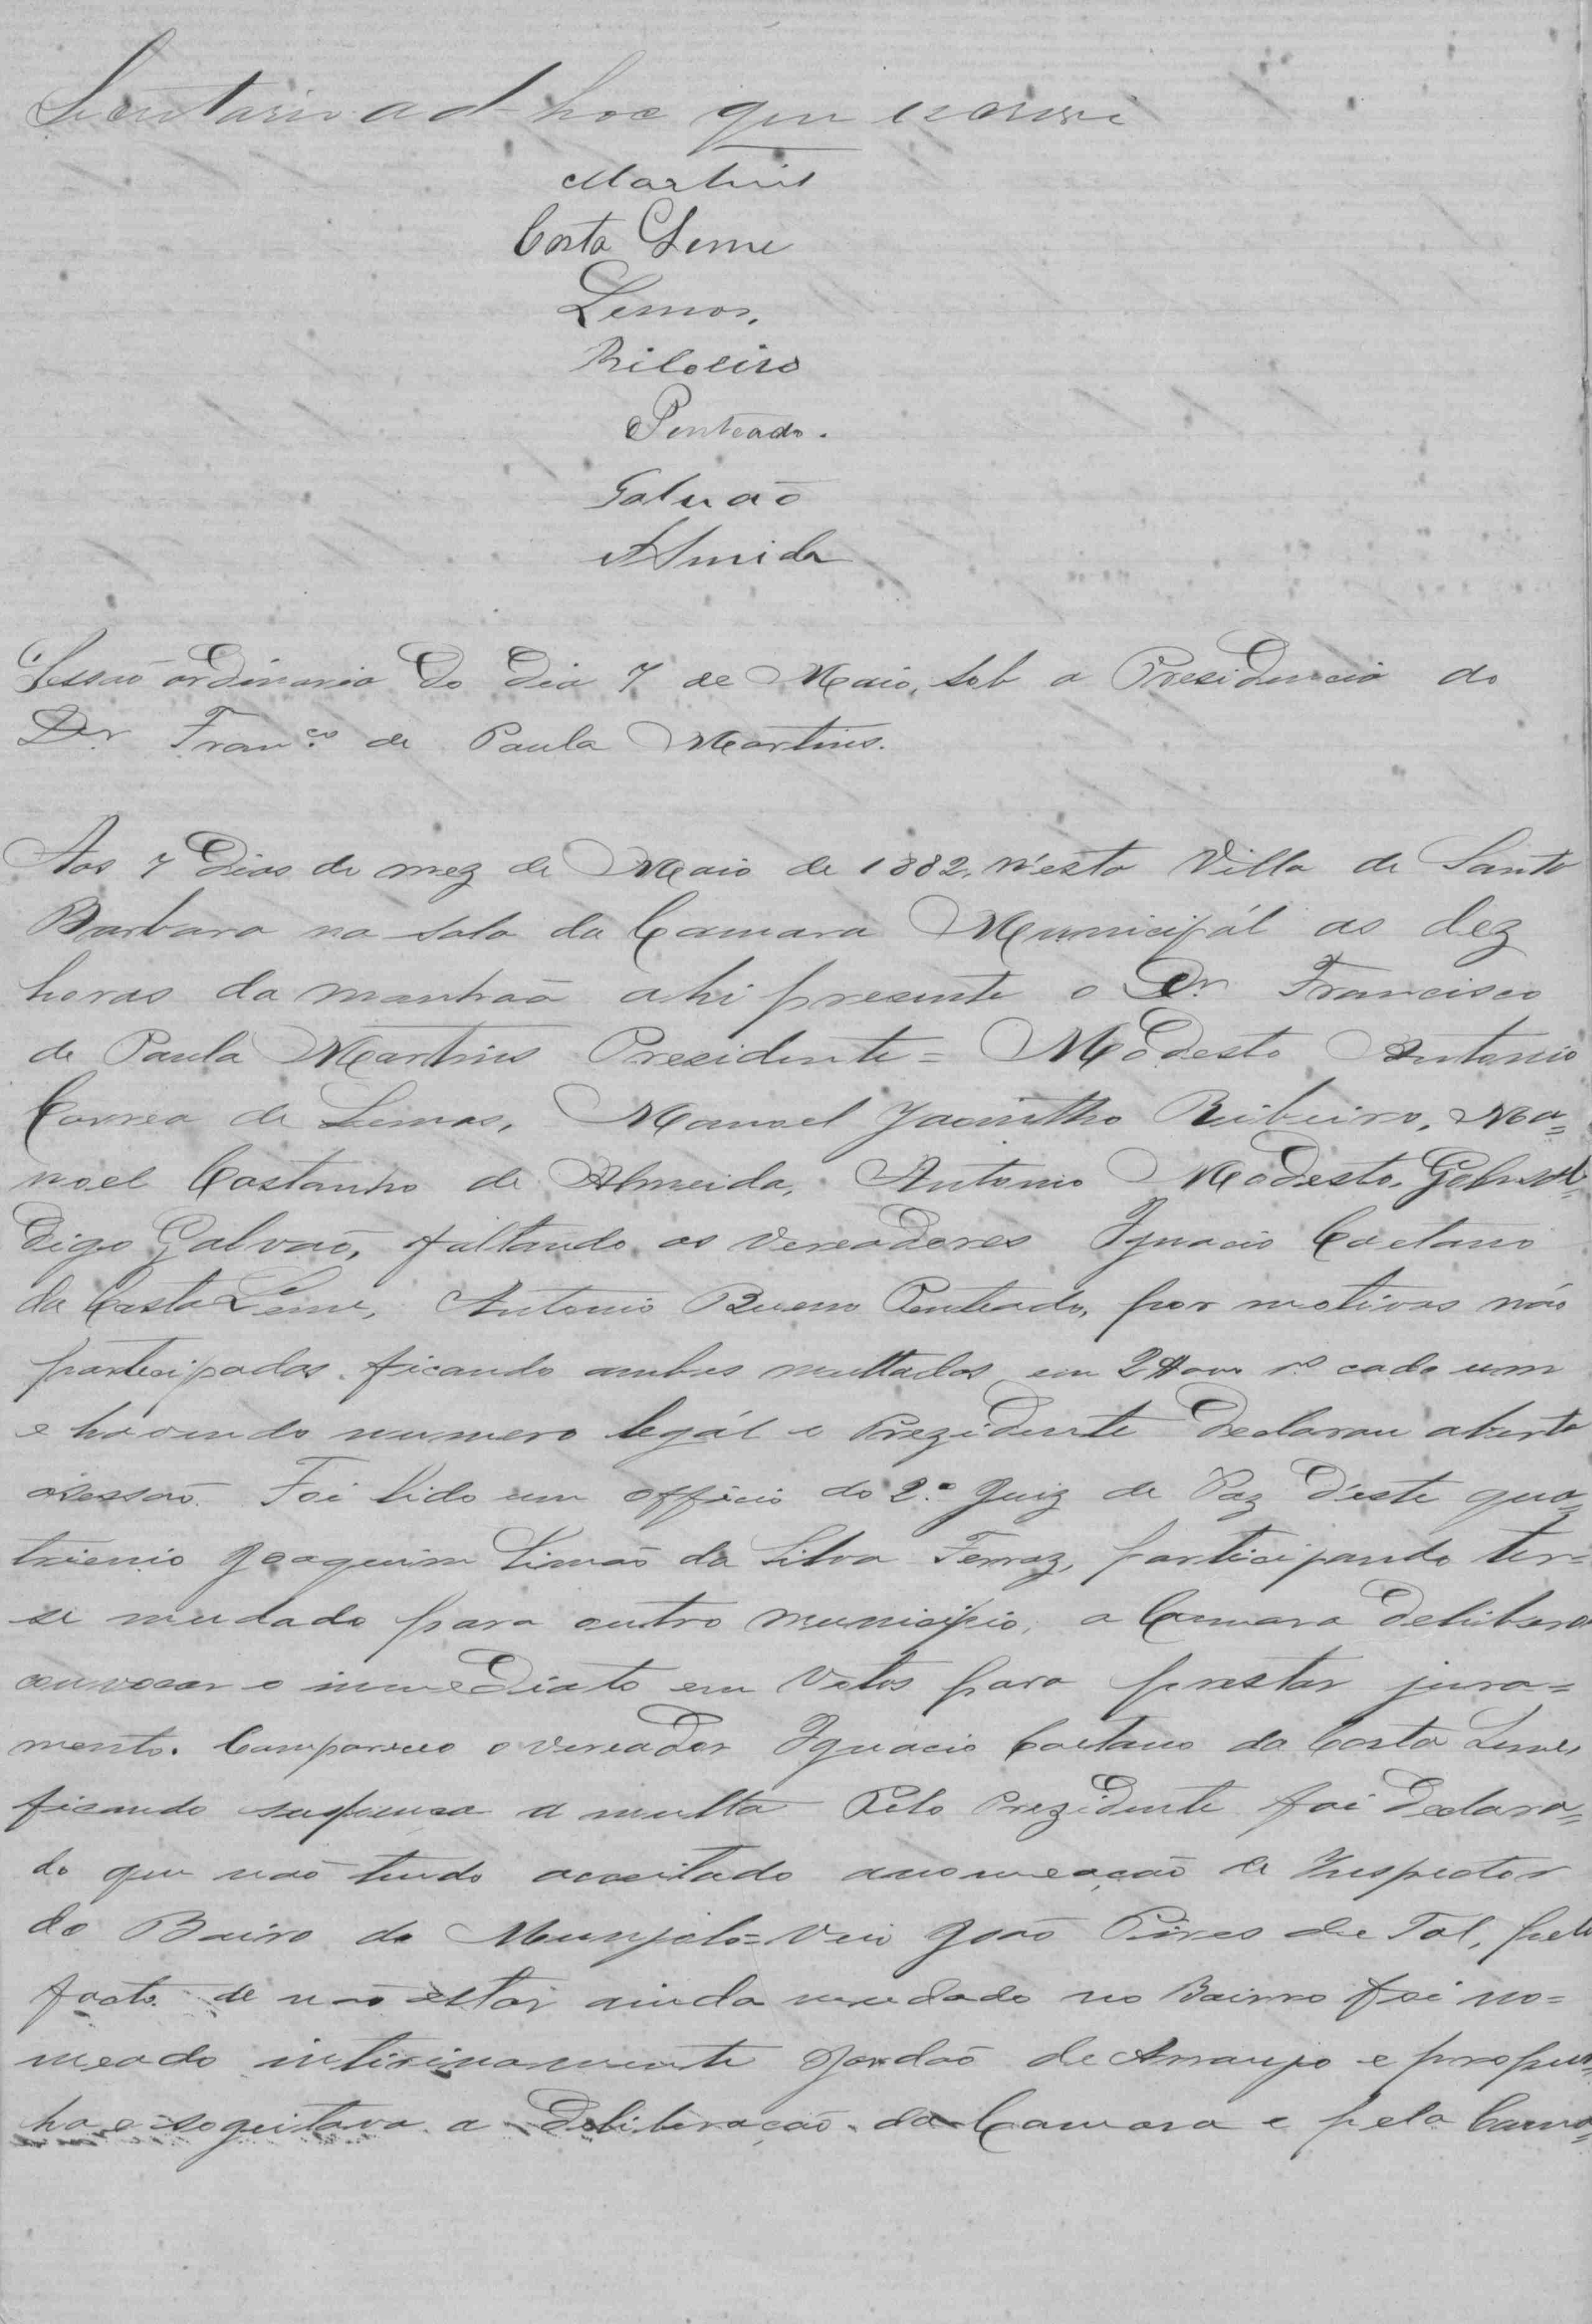 Secretario ad-hoc que escrevi
Martins
Costa Leme
Lemos.
Ribeiro
Penteado.
Galvão
Almeida
Sessão ordinaria do dia 7 de Maio, sob a Presidencia do
Dr. Franco. de Paula Martins.
Aos 7 dias do mez de Maio de 1882, n'esta Villa de Santa
Barbara na sala da Camara Municipál as dez
horas da manhaã ahi presente o Dr. Francisco
de Paula Martins Presidente = Modesto Antonio
Correa de Lemos, Manoel Jacintho Ribeiro, Ma=
noel Castanho de Almeida, Antonio Modesto,
digo Galvaõ, faltando os vereadores Ignacio Caetano
da Costa Leme, Antonio Bueno Penteado, por motivos não
partecipados ficando ambos multados em 2$000 rs cada um
e havendo numero legál o Prezidente declarou aberta
asessaõ. Foi lido um officio do 2.º Juiz de Paz d'este qua=
trienio Joaquim Simaõ da Silva Ferraz, participando ter=
se mudado para outro municipio, a Camara delibera
convocar o immediato em votos para prestar jura=
mento. Compareceo o vereador Ignacio Caetano da Costa Leme,
ficando suspensa a multa Pelo Prezidente foi declara=
do que naõ tendo acceitado anomeaçaõ de Inspector
do Bairo do Monjolo=Veio Joaõ Pires de Tal, pelo
facto de naõ estar ainda mudado no Bairro foi no=
meado interinamente Jordaõ de Arraujo e propu=
ha e sogeitava a deliberaçaõ da Camara e pela Cama=